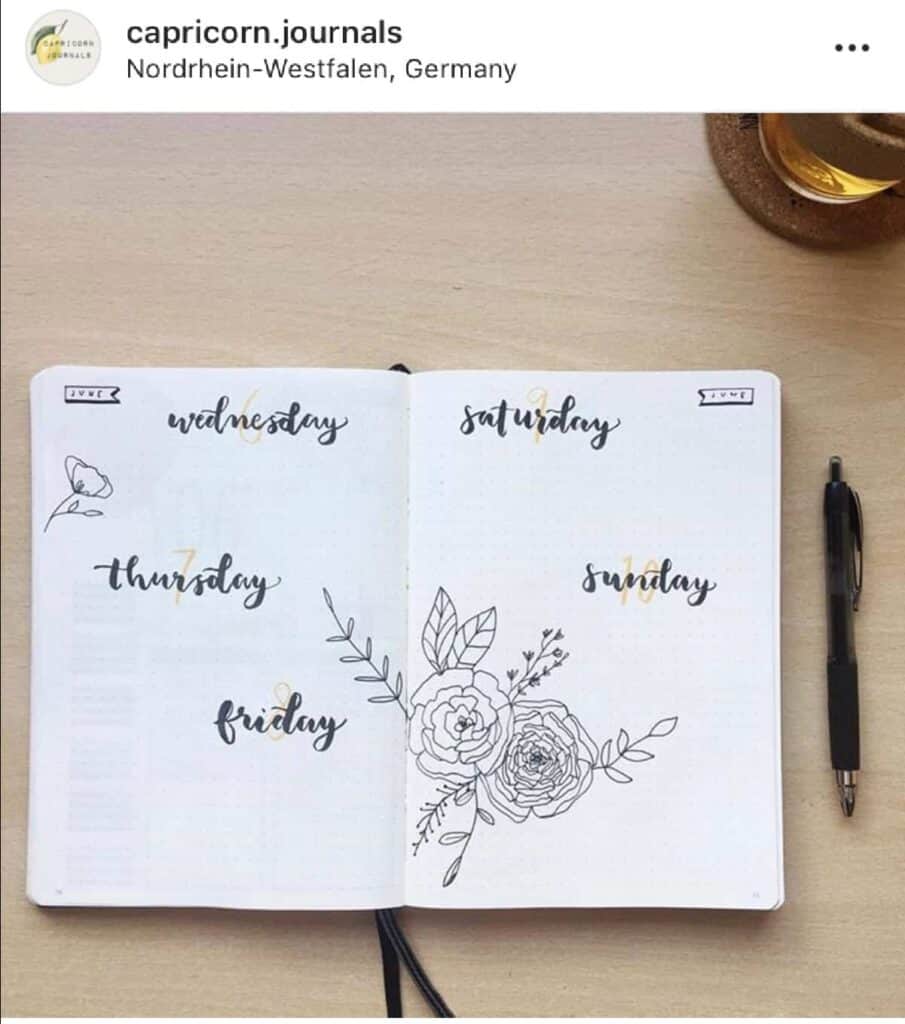 capricorn.journals
Nordrhein-Westfalen, Germany
CAPRICORN
JOURNALS
JUNE
wednesday 6
thursday 7
friday 8
JUNE
saturday 9
sunday 10